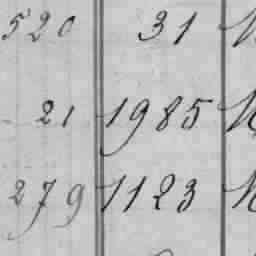 520 31
21 1985
279 1123